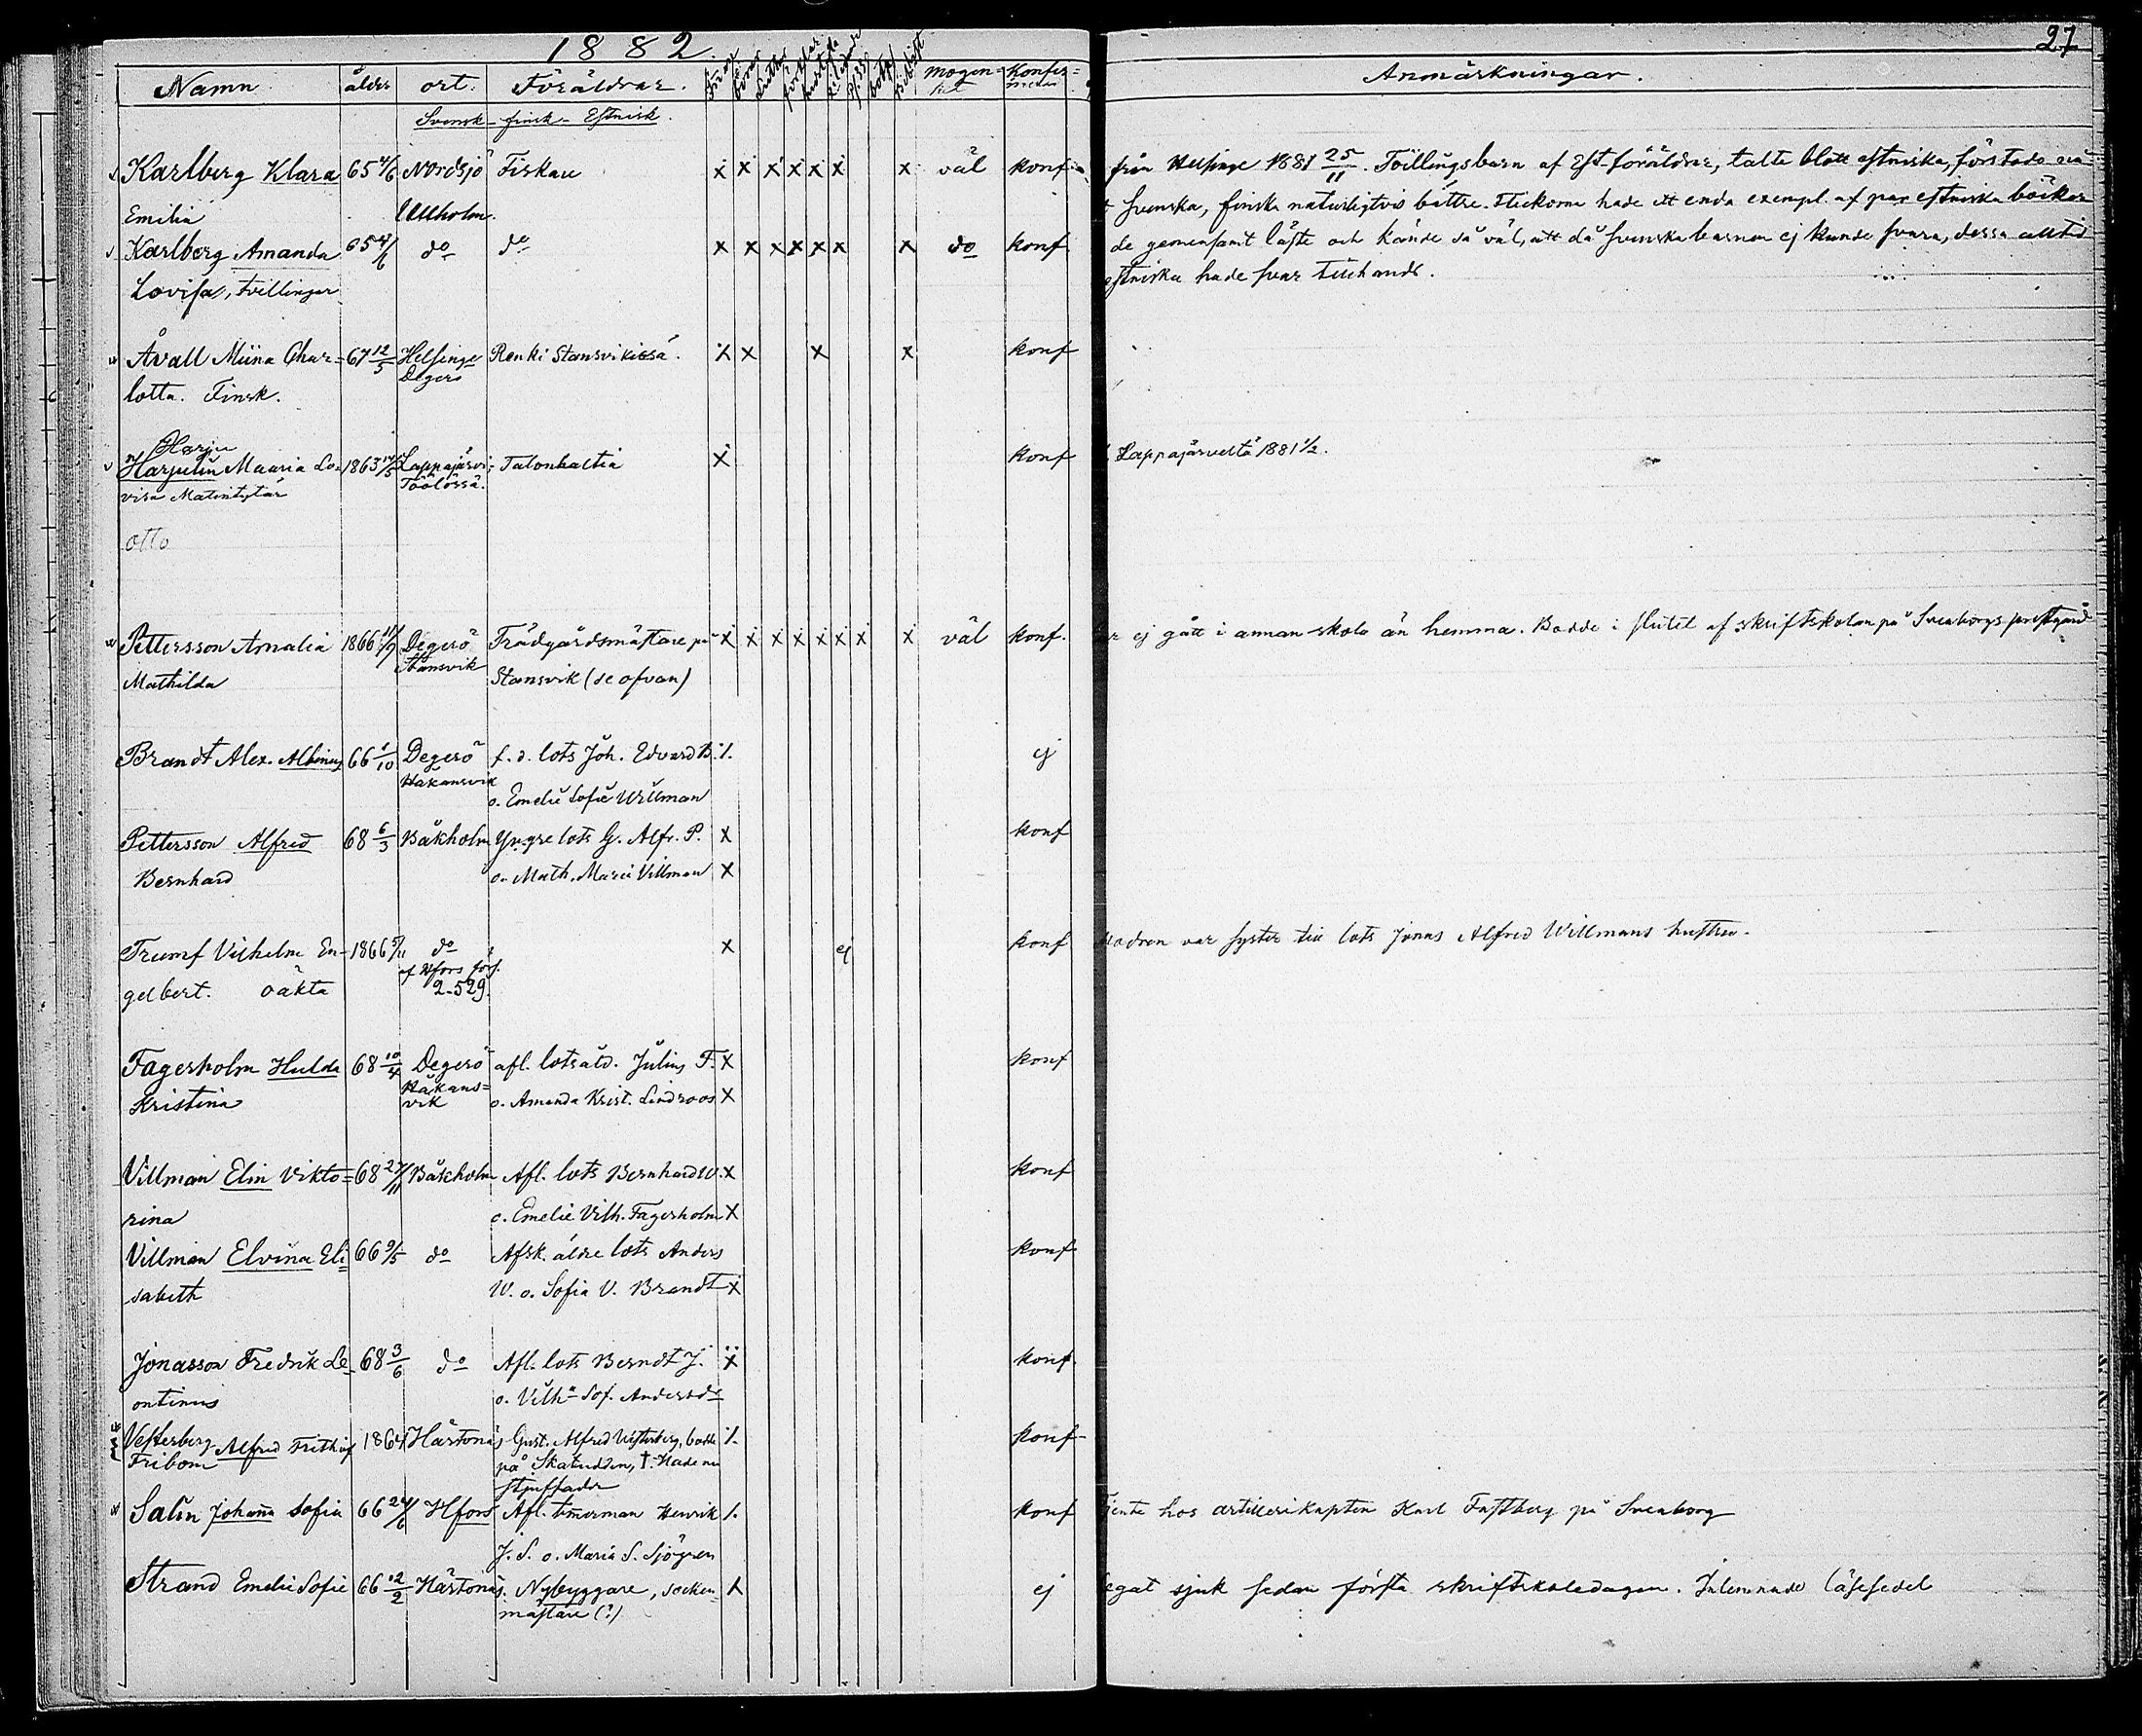 1882.
27
Namn ålder ort. Föräldrar. mogen= het Konfir= meras Anmärkningar.
Svensk- finsk- Estnisk.
Karlberg Klara 65 4/6 Nordsjö Fiskare x x x x x x x väl konf från Helsinge 1881 25/11. Tvillingsbarn af Est-föräldrar, talte blott estniska, förstodo
Emilia Ullholm. svenska, finska naturligtvis bättre. Flickorna hade ett enda exempl. af par estniska böcker
Karlberg Amanda 65 4/6 do do x x x x x x x do konf de gemensamt läste och kände så väl, att då svenska barnen ej kunde svara, dessa alltid
Lovisa, tvillingar estniska hade svar tillhands.
Åvall Miina Char= 67 12/5 Helsinge Renki Stansvikissä. x x x x konf
lotta. Finsk. Degerö
Harju
Harjulin Maaria Lo- 1863 Lappajärvi; Talonhaltia x konf Lappajärveltä 1881 1/2.
visa Matintytär Töölössä.
otto
Pettersson Amalia 1866 11/9 Degerö Trädgårdsmästare på x x x x x x x x väl konf. ej gått i annan skola än hemma. Bodde i slutet af skriftskolan på Sveaborgs prestgård
Mathilda Stansvik Stansvik (se ofvan)
Brandt Alex. Albinus 66 1/10 Degerö f. d. lots Joh. Edvard B. ej
Håkansvik o. Emelie Sofie Willman
Pettersson Alfred 68 6/3 Båkholm Yngre lots G. Alfr. P. x konf
Bernhard o. Math. Maria Villman x
Trumf Vilhelm En- 1866 5/11 do x ej konf Modren var syster till lots Jonas Alfred Willmans hustru.
gelbert. oäkta af Hfors förs. 2-529.
Fagerholm Hulda 68 10/4 Degerö afl. lotsåld. Julius F. x konf
Kristina Håkans= vik o. Amanda Krist. Lindroos x
Villman Elin Vikto= 68 27/11 Båkholm Afl. lots Bernhard W. x konf
rina o. Emelie Vilh. Fagerholm x
Villman Elvina Eli= 66 9/5 do Afsk. äldre lots Anders konf
sabeth W. o. Sofia V. Brandt x
Jonasson Fredrik Le- 68 3/6 do Afl. lots Berndt J. x konf
ontinus o. Vilh:a Sof. Andersdr
Vesterberg Alfred Frithiof 1864 Härtonäs Gust. Alfred Vesterberg, bodde konf
Fribom på Skatudden, †. Hade nu
stjuffader
Salin Johanna Sofia 66 24/6 Hfors Afl. timerman Henrik konf Tjente hos artillerikapten Karl Fastberg på Sveaborg
J. S. o. Maria S. Sjögren
Strand Emelie Sofie 66 12/2 Härtonäs. Nybyggare, socken= x ej legat sjuk sedan första skriftskoledagen. Inlemnade läsesedel
mästare (?)